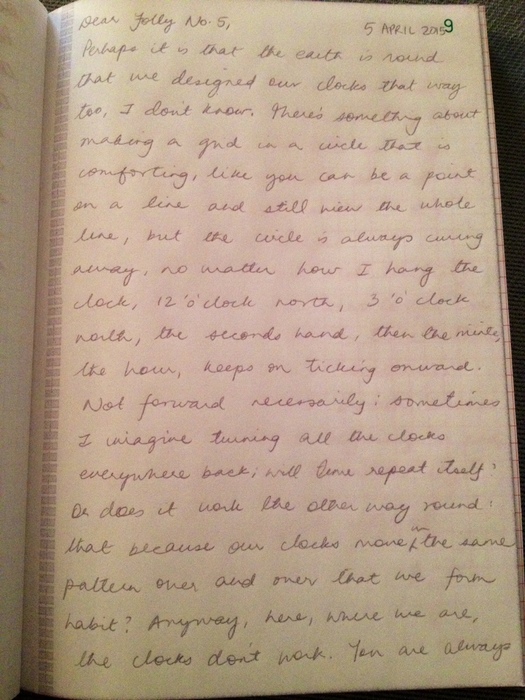 Dear Folly No. 5,
5 APRIL 2015 9
Perhaps it is that the earth is round
that we designed our clocks that way
too, I don't know. There's something about
making a grid in a circle that is
comforting, like you can be a point
on a line and still view the whole
line, but the circle is always curving
away, no matter how I hang the
clock, 12 'o' clock north, 3 'o' clock
north, the seconds hand, then the minute,
the hour, keeps on ticking onward.
Not forward necessarily: sometimes
I imagine turning all the clocks
everywhere back; will time repeat itself?
Or does it work the other way round:
that because our clocks move in the same
pattern over and over that we form
habit? Anyway, here, where we are,
the clocks don't work. You are always